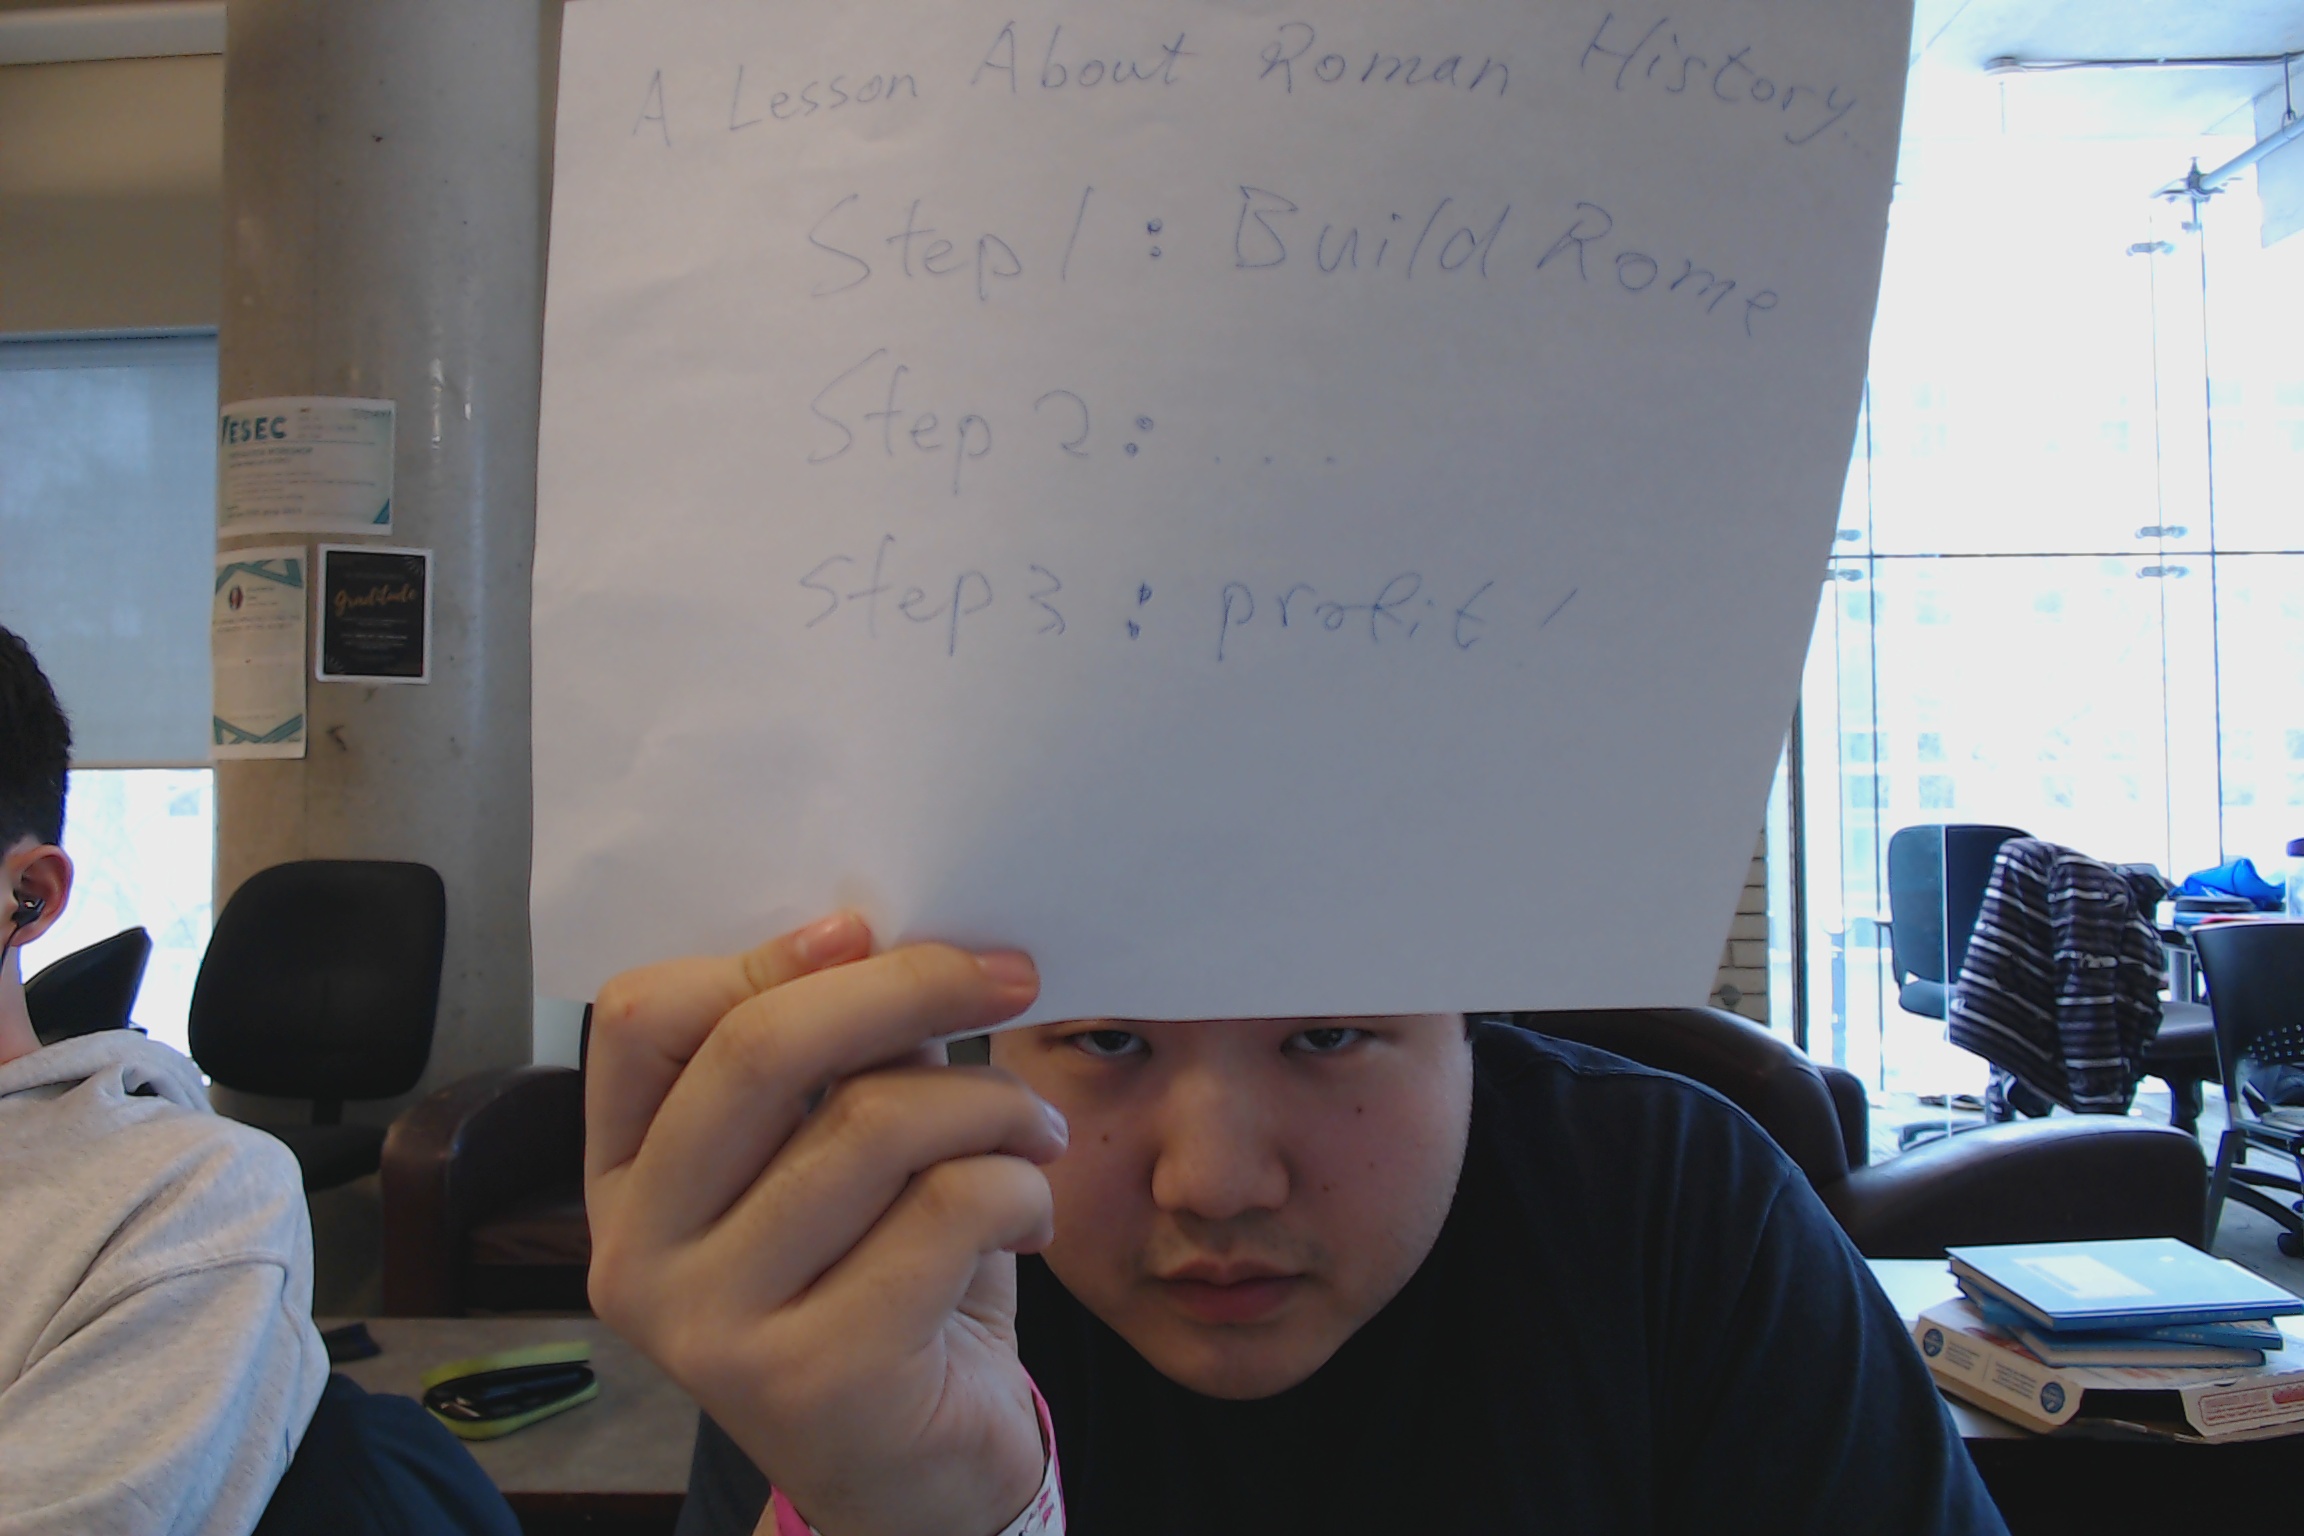 A Lesson About Roman History...
Step 1: Build Rome
Step 2: ...
Step 3: profit!
ESEC
Gratitude